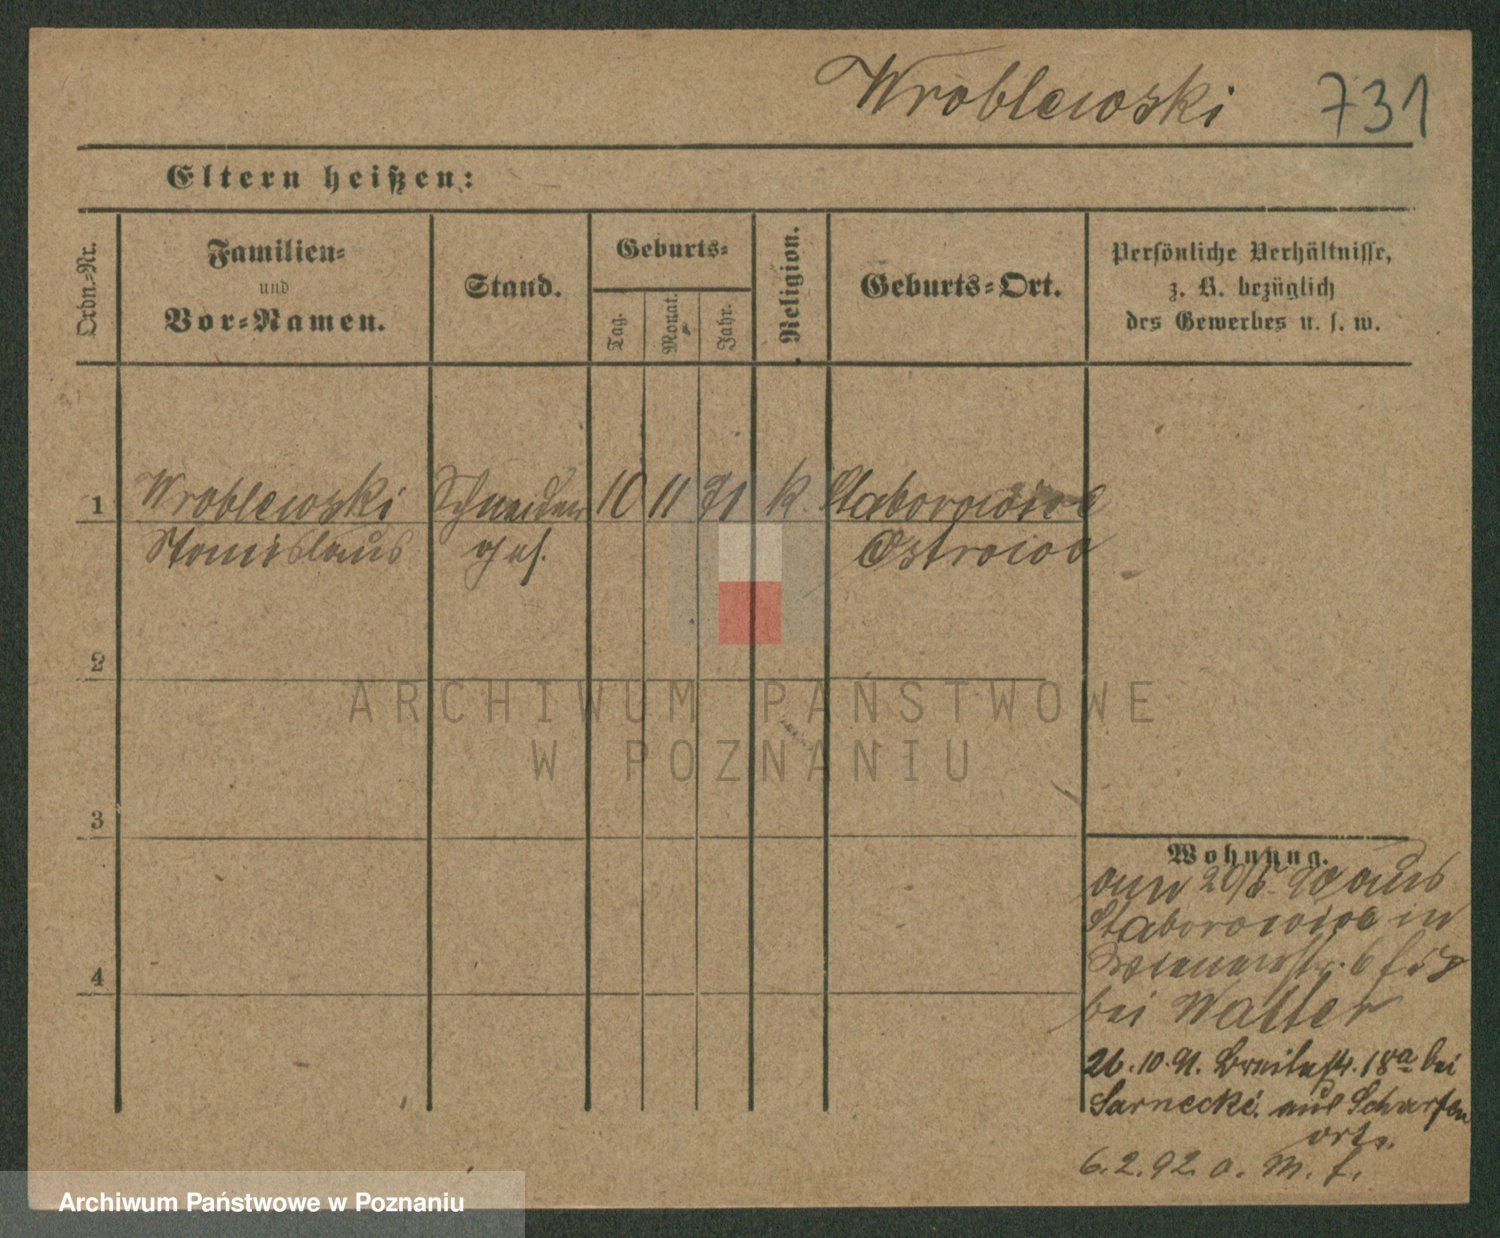 Wroblewski 731
Eltern heißen:
Ordn.-Nr.
Familien-
und
Vor-Namen.
Stand.
Geburts-
Tag.
Monat.
Jahr.
Religion.
Geburts-Ort.
Persönliche Verhältnisse,
z. B. bezüglich
des Gewerbes u. s. w.
1 Wroblewski Schneider 10 11 71 k. Staborowice
Stanislaus ges. Ostrowo
2
3
4
Wohnung.
am 20/5. 90 aus
Staborowice in
6 für
bei Walter
26. 10. 91. Breitestr. 18a bei
Sarnecki. aus Scharfen
ort.
6. 2. 92 o. M. f.
ARCHIWUM PAŃSTWOWE
W POZNANIU
Archiwum Państwowe w Poznaniu